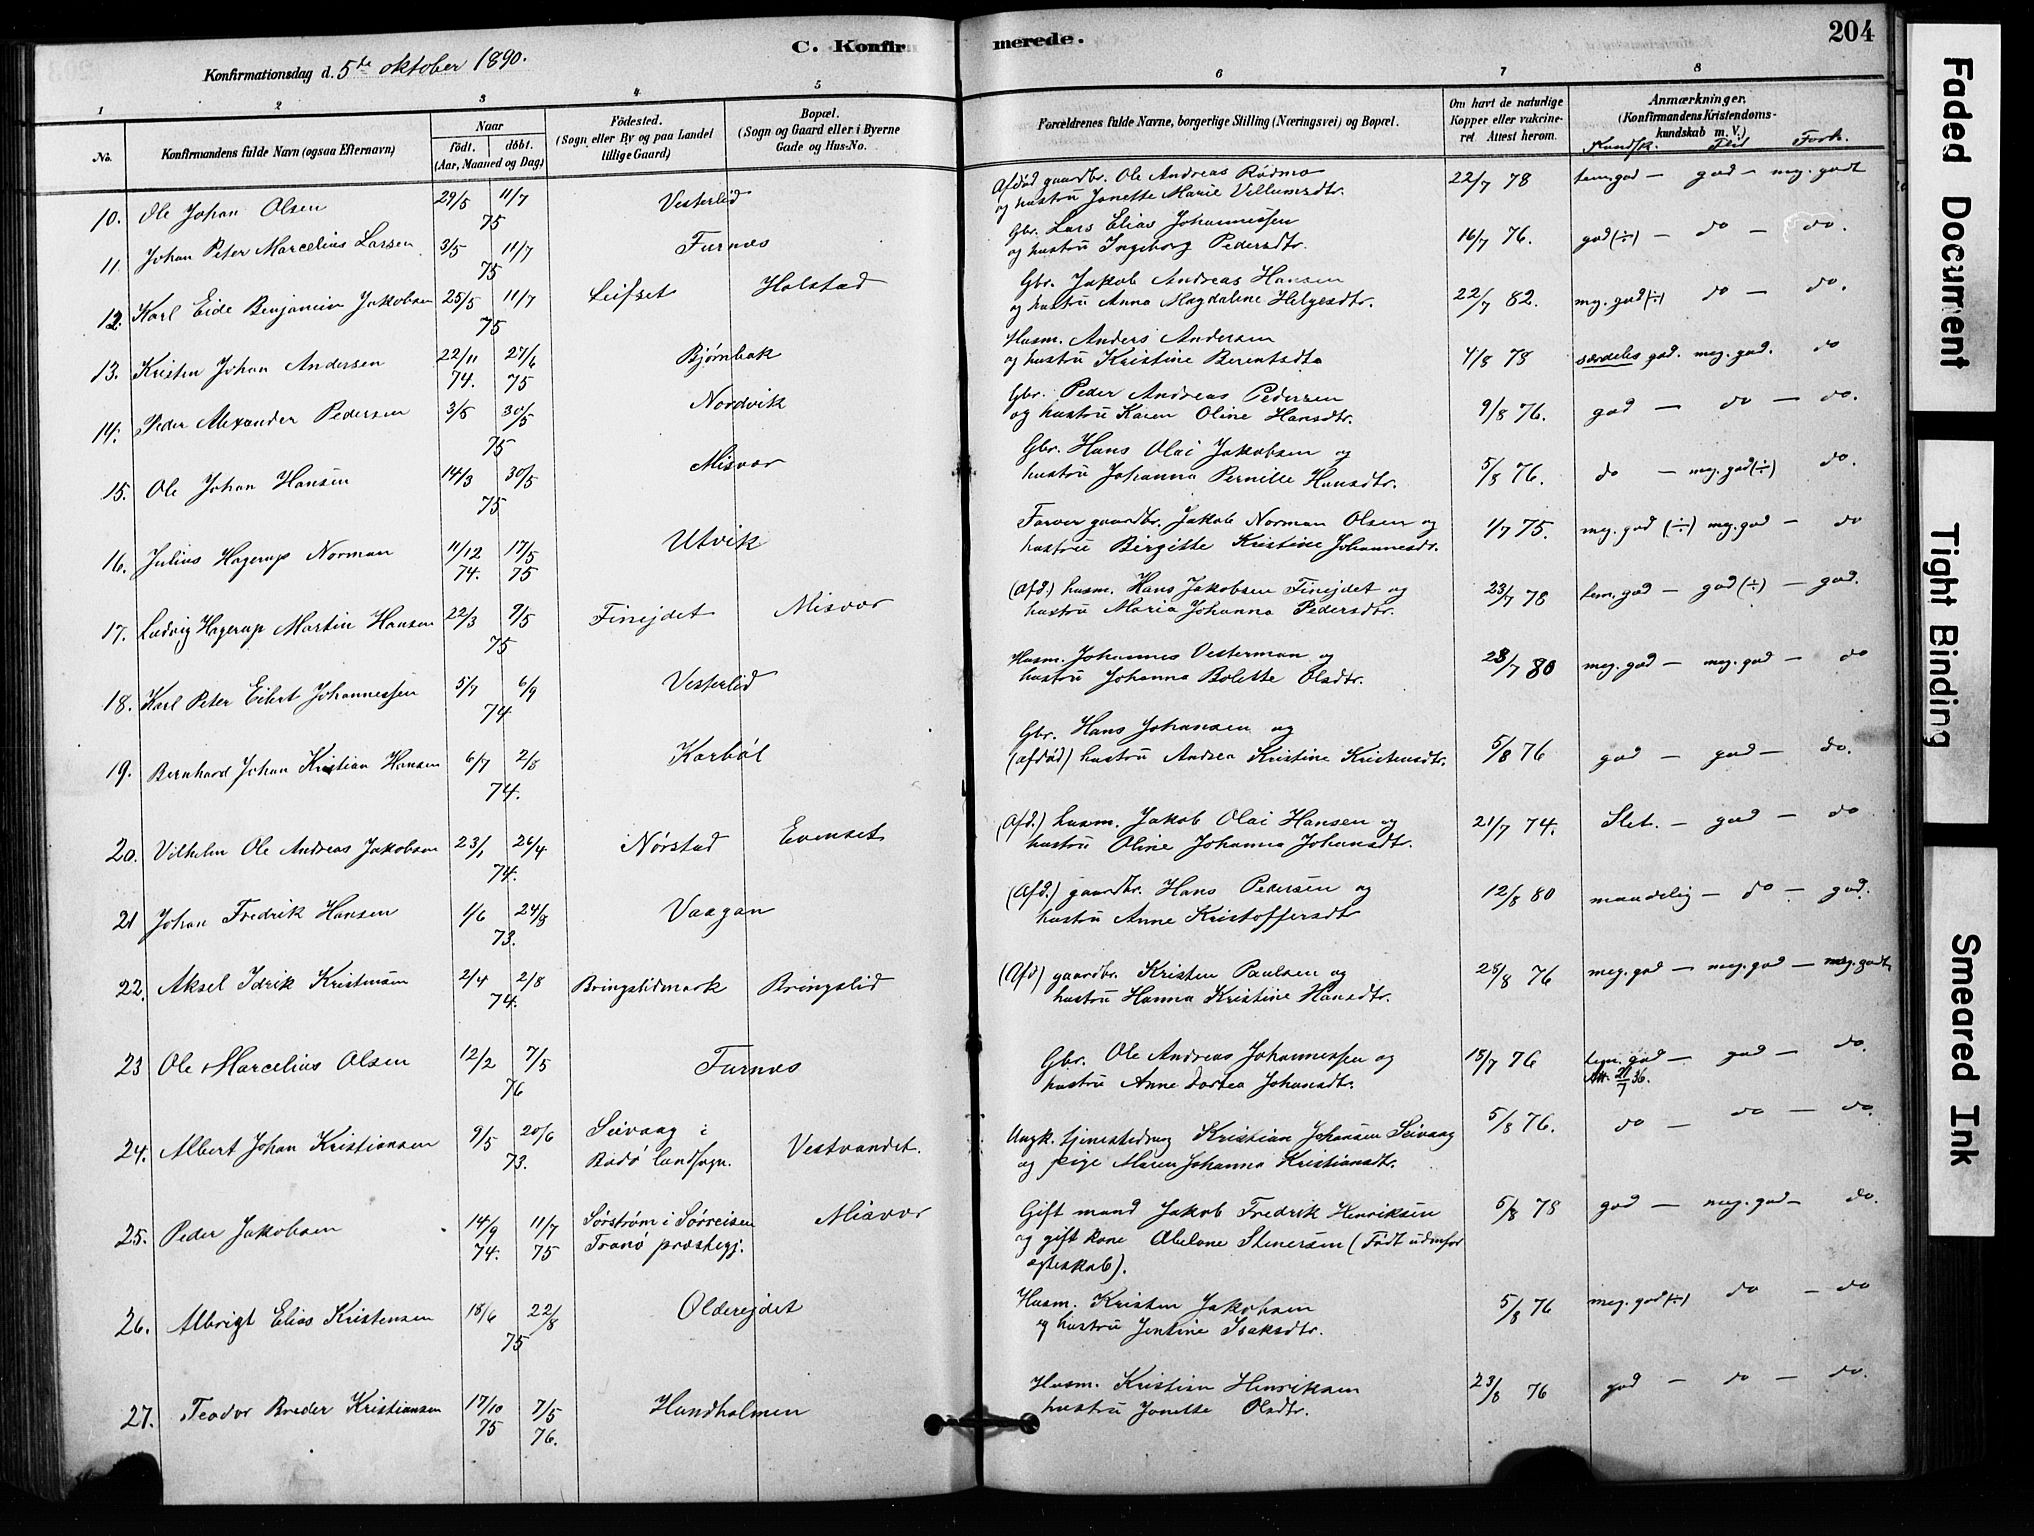 204
C. Konfirmerede.
Konfirmationsdag d. 5te oktober 1890.
1 2 3 4 5 6 7 8
No.
Konfirmandens fulde Navn (ogsaa Efternavn)
Naar
født. døbt.
(Aar, Maaned og Dag)
Fødested.
(Sogn eller By og paa Landet
tillige Gaard)
Bopæl.
(Sogn og Gaard eller i Byerne
Gade og Hus-No.
Forældrenes fulde Navne, borgerlige Stilling (Næringsvei) og Bopæl.
Om havt de naturlige
Kopper eller vakcine-
ret Attest herom.
Anmærkninger.
(Konfirmandens Kristendoms-
kundskab m. V.)
Kundsk. Flid Forh.
10. Ole Johan Olsen 29/5 11/7 75 Vesterlid
Afdød gaardbr. Ole Andreas Rødmo
og hustru Jonette Marie Villumsdtr. 22/7 78 tem. god — god — meg. godt
11. Johan Peter Marcelius Larsen 3/5 11/7 75 Furnes
Gbr. Lars Elias Johannessen
og hustru Ingeborg Pedersdtr. 16/7 76. god (÷) — do — do.
12. Karl Eide Benjamin Jakobsen 25/5 11/7 75 Leifset Holstad
Gbr. Jakob Andreas Hansen
og hustru Anna Magdalene Helgesdtr. 22/7 82. meg. god (÷) do — do.
13. Kristen Johan Andersen 22/11 74. 27/6 75 Bjørnbak
Husm. Anders Andersen
og hustru Kristine Berentsdtr 4/8 78 særdeles god. meg. god. do
14. Peder Alexander Pedersen 3/5 30/5 75 Nordvik
Gbr. Peder Andreas Pedersen
og hustru Karen Oline Hansdtr. 9/8 76. god — do — do.
15. Ole Johan Hansen 14/3 30/5 75 Misvær
Gbr. Hans Olai Jakobsen og
hustru Johanna Pernille Hansdtr. 5/8 76. do — meg. god (÷) do.
16. Julius Hagerup Norman 11/12 74. 17/5 75 Utvik
Farver gaardbr. Jakob Norman Olsen og
hustru Birgitte Kristine Johannesdtr. 1/7 75. meg. god (÷) meg. god — do
17. Ludvig Hagerup Martin Hansen 22/3 9/5 75 Finejdet Misvær
(Afd.) husm. Hans Jakobsen Finejdet og
hustru Maria Johanna Pedersdtr. 23/7 78 tem. god — god (÷) — god.
18. Karl Peter Eilert Johannessen 5/7 6/9 74 Vesterlid
Husm. Johannes Vesterman og
hustru Johanna Bolette Olsdtr. 28/7 80 meg. god — meg. god — do
19. Bernhard Johan Kristian Hansen 6/7 2/8 74. Karbøl
Gbr. Hans Johansen og
(afdød) hustru Andrea Kristine Kristensdtr. 5/8 76 god — god — do.
20. Vilhelm Ole Andreas Jakobsen 23/1 26/4 74. Nørstad Evenset
(Afd.) husm. Jakob Olai Hansen og
hustru Oline Johanna Johansdtr. 21/7 74. Slet. — god — do
21 Johan Fredrik Hansen 1/6 24/8 73. Vaagan
(Afd.) gaardbr. Hans Pedersen og
hustru Anne Kristoffersdt 12/8 80 maadelig — do — god.
22. Aksel Idrik Kristensen 2/4 2/8 74. Bringslidmark Bringslid
(Afd) gaardbr. Kristen Paulsen og
hustru Hanna Kristine Hansdtr. 28/8 76 meg. god — meg. god — meg. godt
23 Ole Marcelius Olsen 12/2 7/5 76 Furnes
Gbr. Ole Andreas Johannessen og
hustru Anne Dortea Johansdtr. 18/7 76 tem. god — god — do.
Att. 21/7 36.
24. Albert Johan Kristiansen 9/5 20/6 73. Seivaag i
Bodø landsogn. Vestvandet.
Ungk. tjenestedreng Kristian Johansen Seivaag
og pige Maren Johanna Kristiansdtr. 5/8 76. do — do — do.
25. Peder Jakobsen 14/9 74. 11/7 75 Sørstrøm i Sørreisen
Tranø præstegj. Misvær
Gift mand Jakob Fredrik Henriksen
og gift kone Abelone Stenersen (Født udenfor
ægteskab). 5/8 78 god — meg. god — do.
26. Albrigt Elias Kristensen 18/6 22/8 75 Olderejdet
Husm. Kristen Jakobsen
og hustru Jentine Isaksdtr. 5/8 76 meg. god (÷) do — do
27. Teodor Breder Kristiansen 17/10 75 7/5 76. Hundholmen
Husm. Kristian Henriksen
hustru Jonette Olsdtr. 23/8 76 god — do — do.
Faded Document
Tight Binding
Smeared Ink